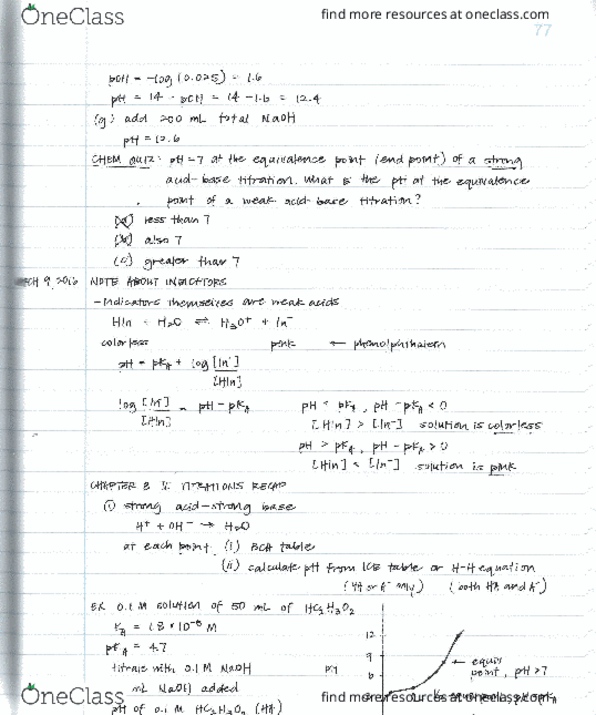 OneClass
find more resources at oneclass.com
77
pOH = -log (0.025) = 1.6
pH = 14 - pOH = 14 - 1.6 = 12.4
(g) add 200 mL total NaOH
pH = 12.6
CHEM QUIZ: pH = 7 at the equivalence point (end point) of a strong
acid-base titration. What is the pH at the equivalence
point of a weak acid-base titration?
(a) less than 7
(b) also 7
(c) greater than 7
CH 9, 2016 NOTE ABOUT INDICATORS
- Indicators themselves are weak acids
HIn + H2O ⇌ H3O+ + In-
colorless pink ← phenolphthalein
pH = pKA + log [In-]
[HIn]
log [In-] = pH - pKA pH < pKA, pH - pKA < 0
[HIn] [HIn] > [In-] solution is colorless
pH > pKA, pH - pKA > 0
[HIn] < [In-] solution is pink
CHAPTER 8 TITRATIONS RECAP
① strong acid-strong base
H+ + OH- → H2O
at each point (i) BCA table
(ii) calculate pH from ICE table or H-H equation
(HA or A- only) (both HA and A-)
EX 0.1 M solution of 50 mL of HC2H3O2
KA = 1.8 * 10-5 M
pKA = 4.7
titrate with 0.1 M NaOH
mL NaOH added
pH of 0.1 M HC2H3O2 (HA)
12
9
6
pH
← equiv
point, pH > 7
OneClass
find more resources at oneclass.com